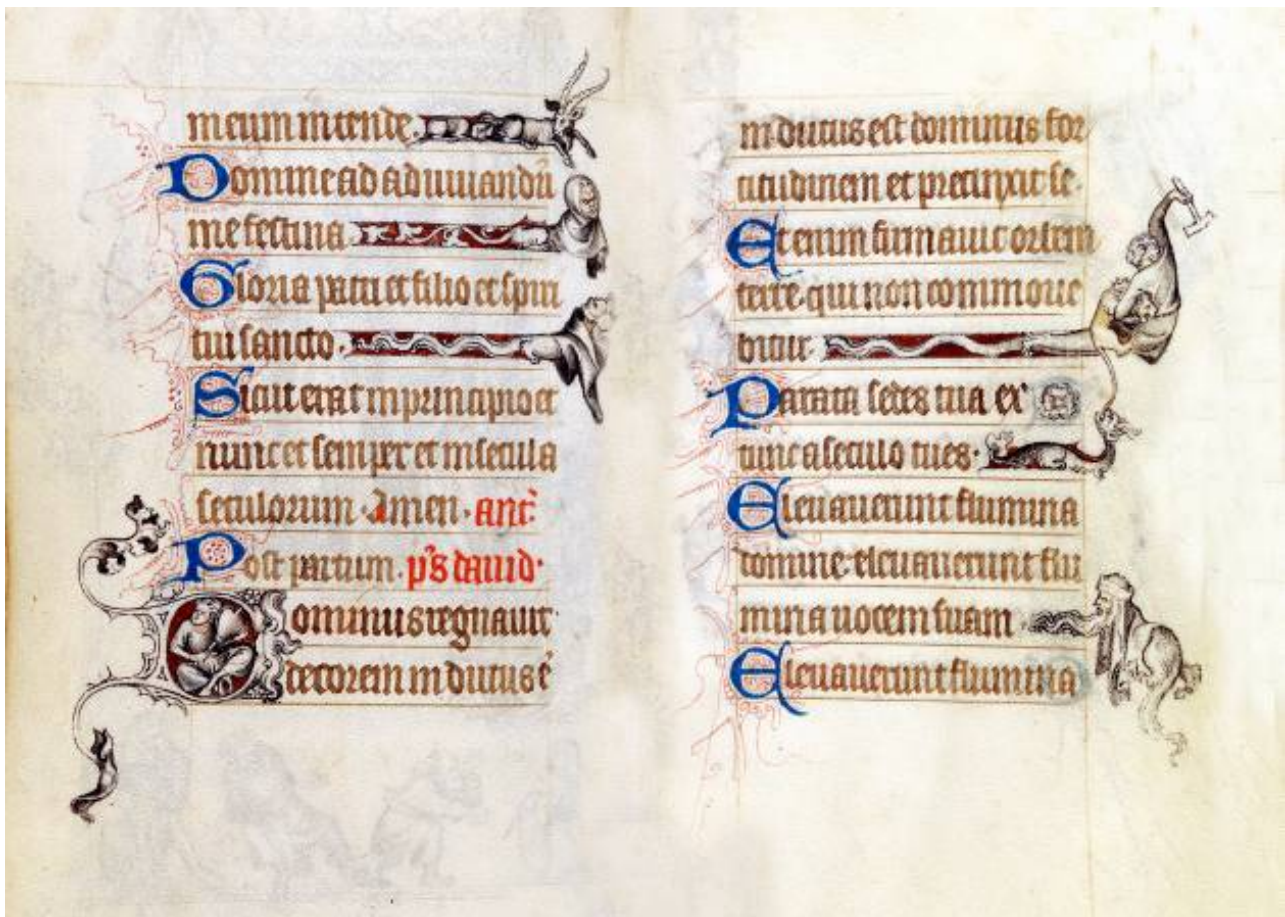 meum intende.
Domine ad adiuuandū
me festina.
Gloria patri et filio et spiri
tui sancto.
Sicut erat in principio et
nunc et semper et in secula
seculorum. Amen. ant̄.
Post partum. p̄s dauid.
Dominus regnauit
decorem indutus ē
indutus est dominus for
titudinem et precinxit se.
Etenim firmauit orbem
terre. qui non commoue
bitur.
Parata sedes tua ex
tunc a seculo tu es.
Eleuauerunt flumina
domine. eleuauerunt flu
mina uocem suam
Eleuauerunt flumina